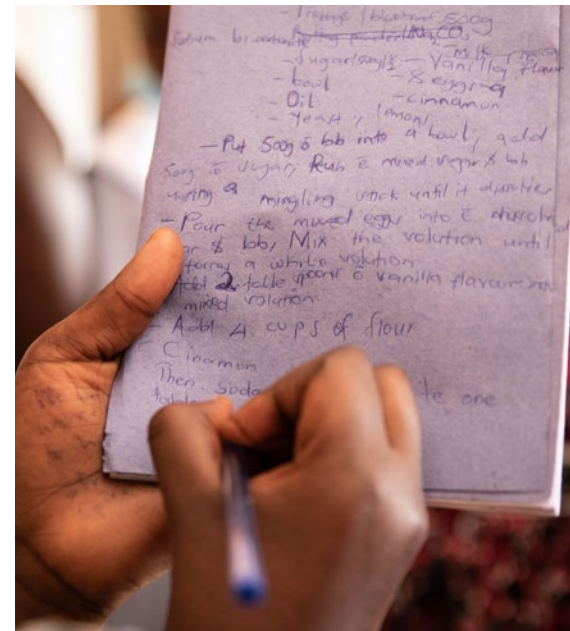 blueband 500g
Sodium NaCO3
- Sugar - milk
- bowl - Vanilla flavour
- Oil - 8 eggs
- Yeast, lemon, - cinnamon
- Put 500g o bb into a bowl, add
o sugar, Rub e mixed sugar & bb
using a mingling stick until it dissolves
- Pour the mixed eggs into e
& bb, Mix the solution until
forms a white solution
Add 2 table spoons o vanilla flavour into
mixed solution.
Add 4 cups of flour
Cinamon
Then soda one